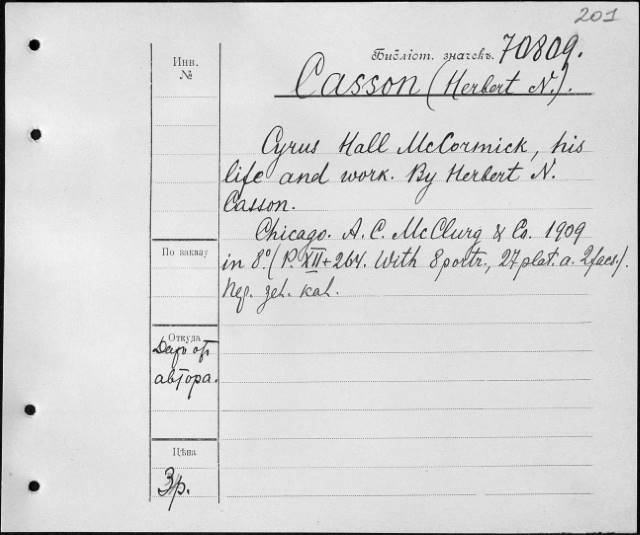 201
Библіот. значекъ. 70809.
Casson (Herbert N.).
Инв.
№
Cyrus Hall McCormick, his
life and work. By Herbert N.
Casson.
Chicago. A. C. McClurg & Co. 1909
in 8º. (P. XII+264. With 8 portr., 27 plat. a. 2 facs.).
Пер. zeh. kah.
По заказу
Откуда
Даръ от
автора.
Цѣна
3р.